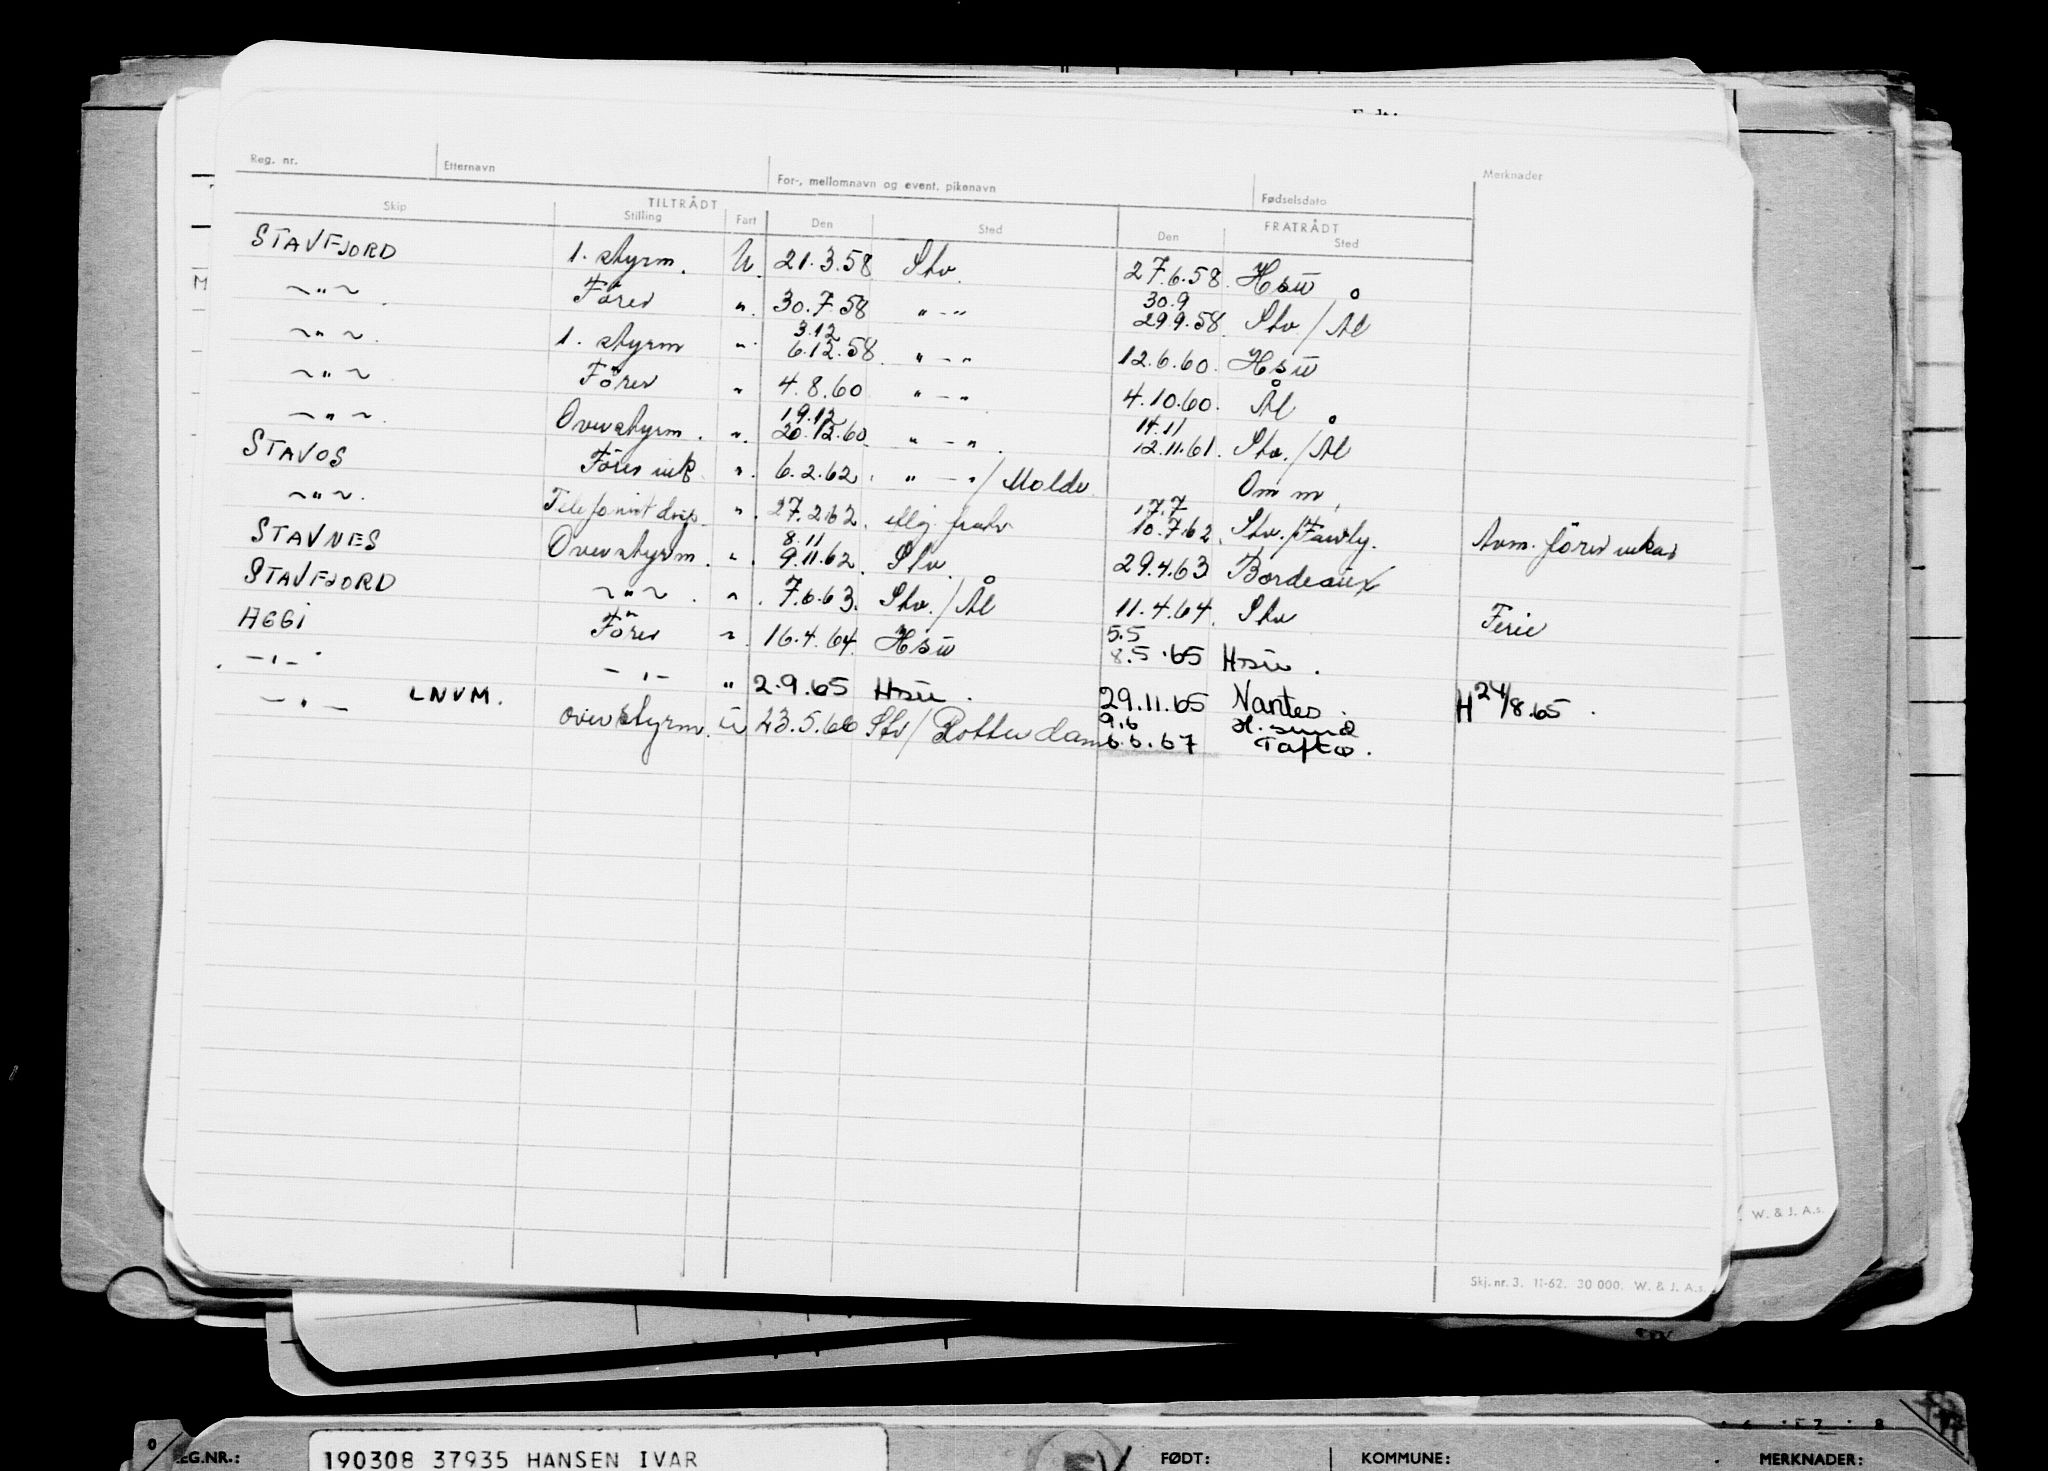 Reg. nr. Etternavn For-, mellomnavn og event. pikenavn Fødselsdato Merknader
TILTRÅDT FRATRÅDT
Skip Stilling Fart Den Sted Den Sted
STAVFJORD 1. styrm. U. 21.3.58 Stv. 27.6.58. Hsu
~"~ Förer ". 30.7.58 "-" 30.9 29.9.58. Stv./Ål
~"~ 1. styrm " 3.12 6.12.58. "-" 12.6.60. Hsu
~"~ Förer " 4.8.60 "-" 4.10.60. Ål
~"~ Overstyrm. ". 19.12 20.12.60. "-" 14.11 12.11.61. Stv./Ål
STAVOS Förer vik. ". 6.2.62. "-"/Molde Om m.
~"~. Telefonist disp. ". 27.2.62. 17.7 10.7.62. Stv./ Avm. förer vikar
STAVNES Overstyrm. ". 8.11 9.11.62. Stv 29.4.63 Bordeaux
STAVFJORD ~"~. ". 7.6.63. Stv./Ål 11.4.64. Stv Ferie
AGGI Förer " 16.4.64. Hsu 5.5 8.5.65 Hsu.
-"- -"- " 2.9.65 Hsu. 29.11.65 Nantes. H 24/8.65.
-"- LNVM. overstyrm. U 23.5.66 Stv/Rotterdam 9.6 6.6.67 H.sund Taftø.
Skj. nr. 3. 11-62. 30 000. W. & J. A.s.
W. & J. A.s.
REG.NR.: 190308 37935 HANSEN IVAR FØDT: KOMMUNE: MERKNADER: